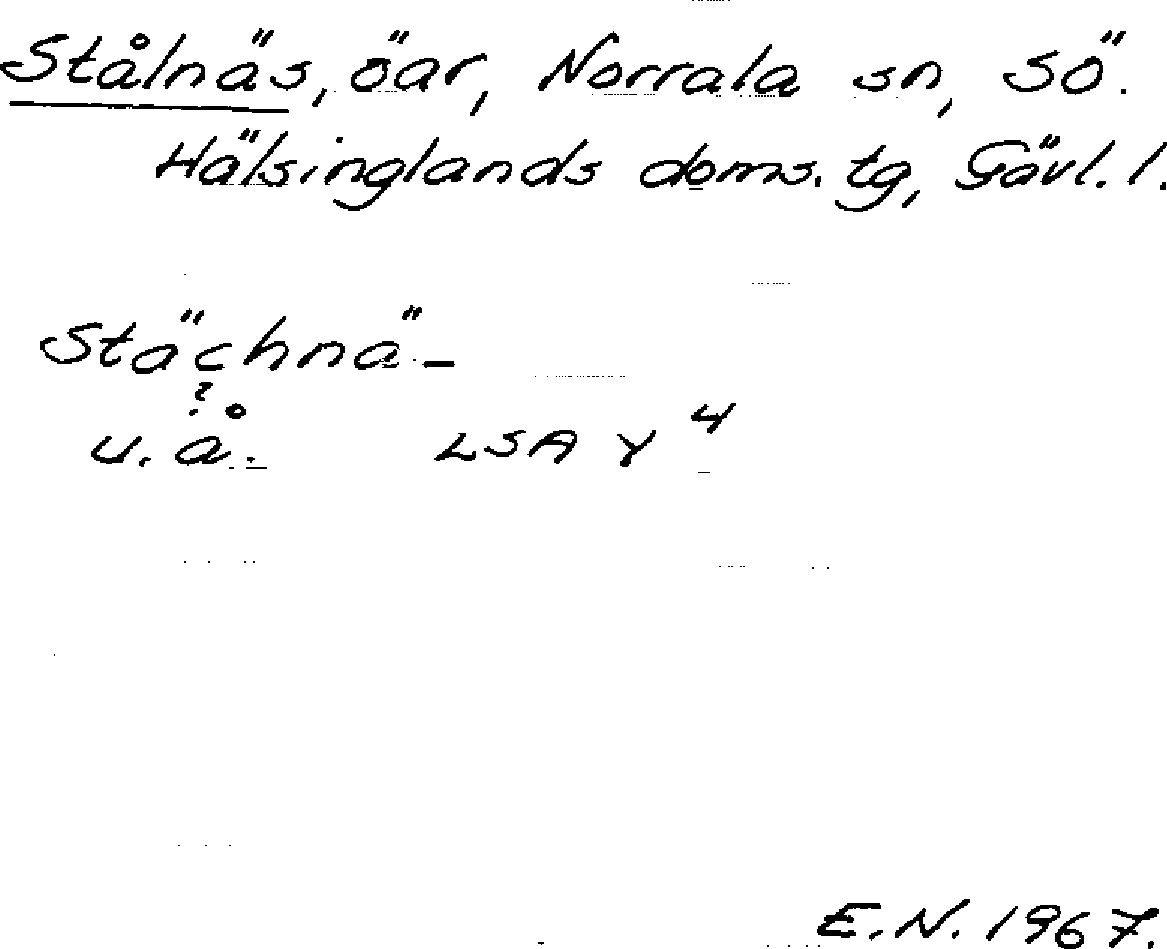 Stålnäs, öar, Norrala sn, SÖ.
Hälsinglands doms. tg, Gävl. l.
Stächnä-
?
u. å. LSA Y 4
E.N. 1967.